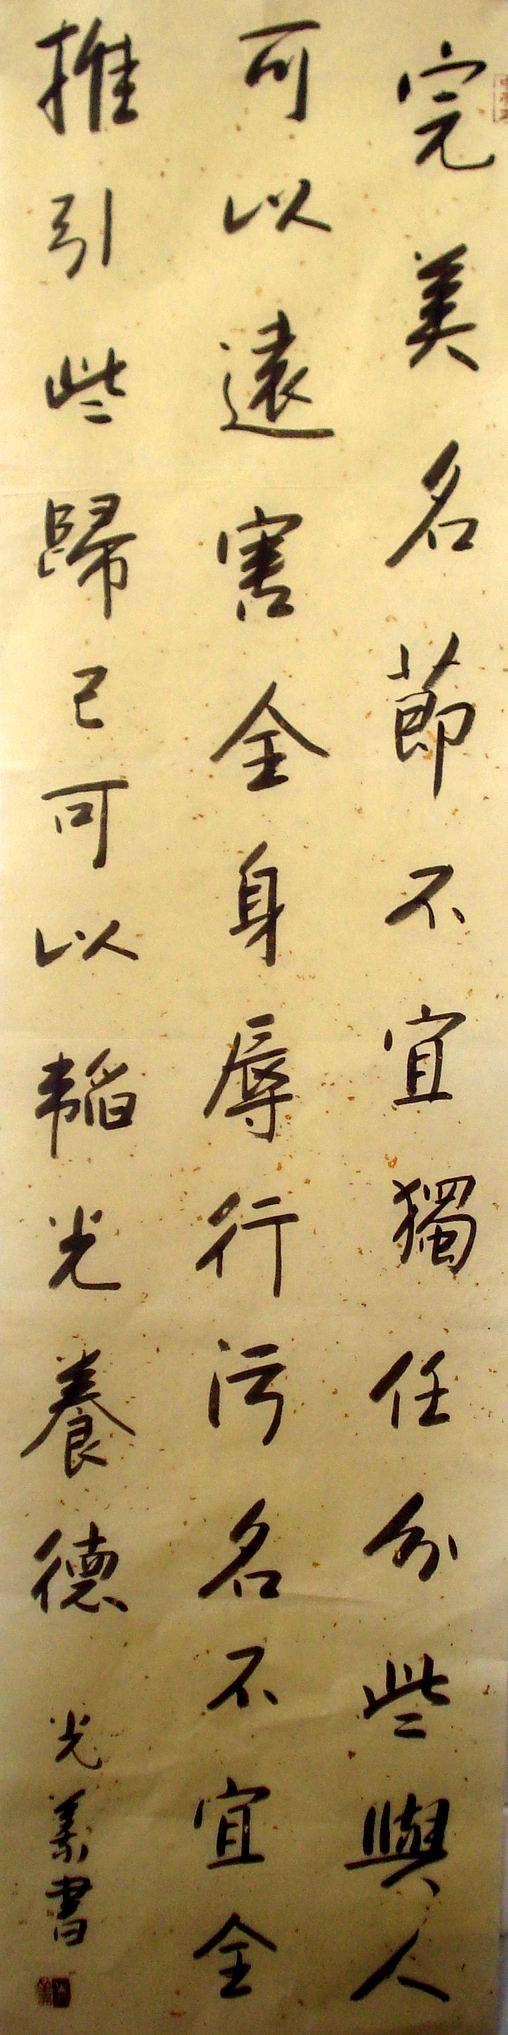 完美名節不宜獨任分些與人
可以遠害全身辱行污名不宜全
推引些歸己可以韜光養德
光義書